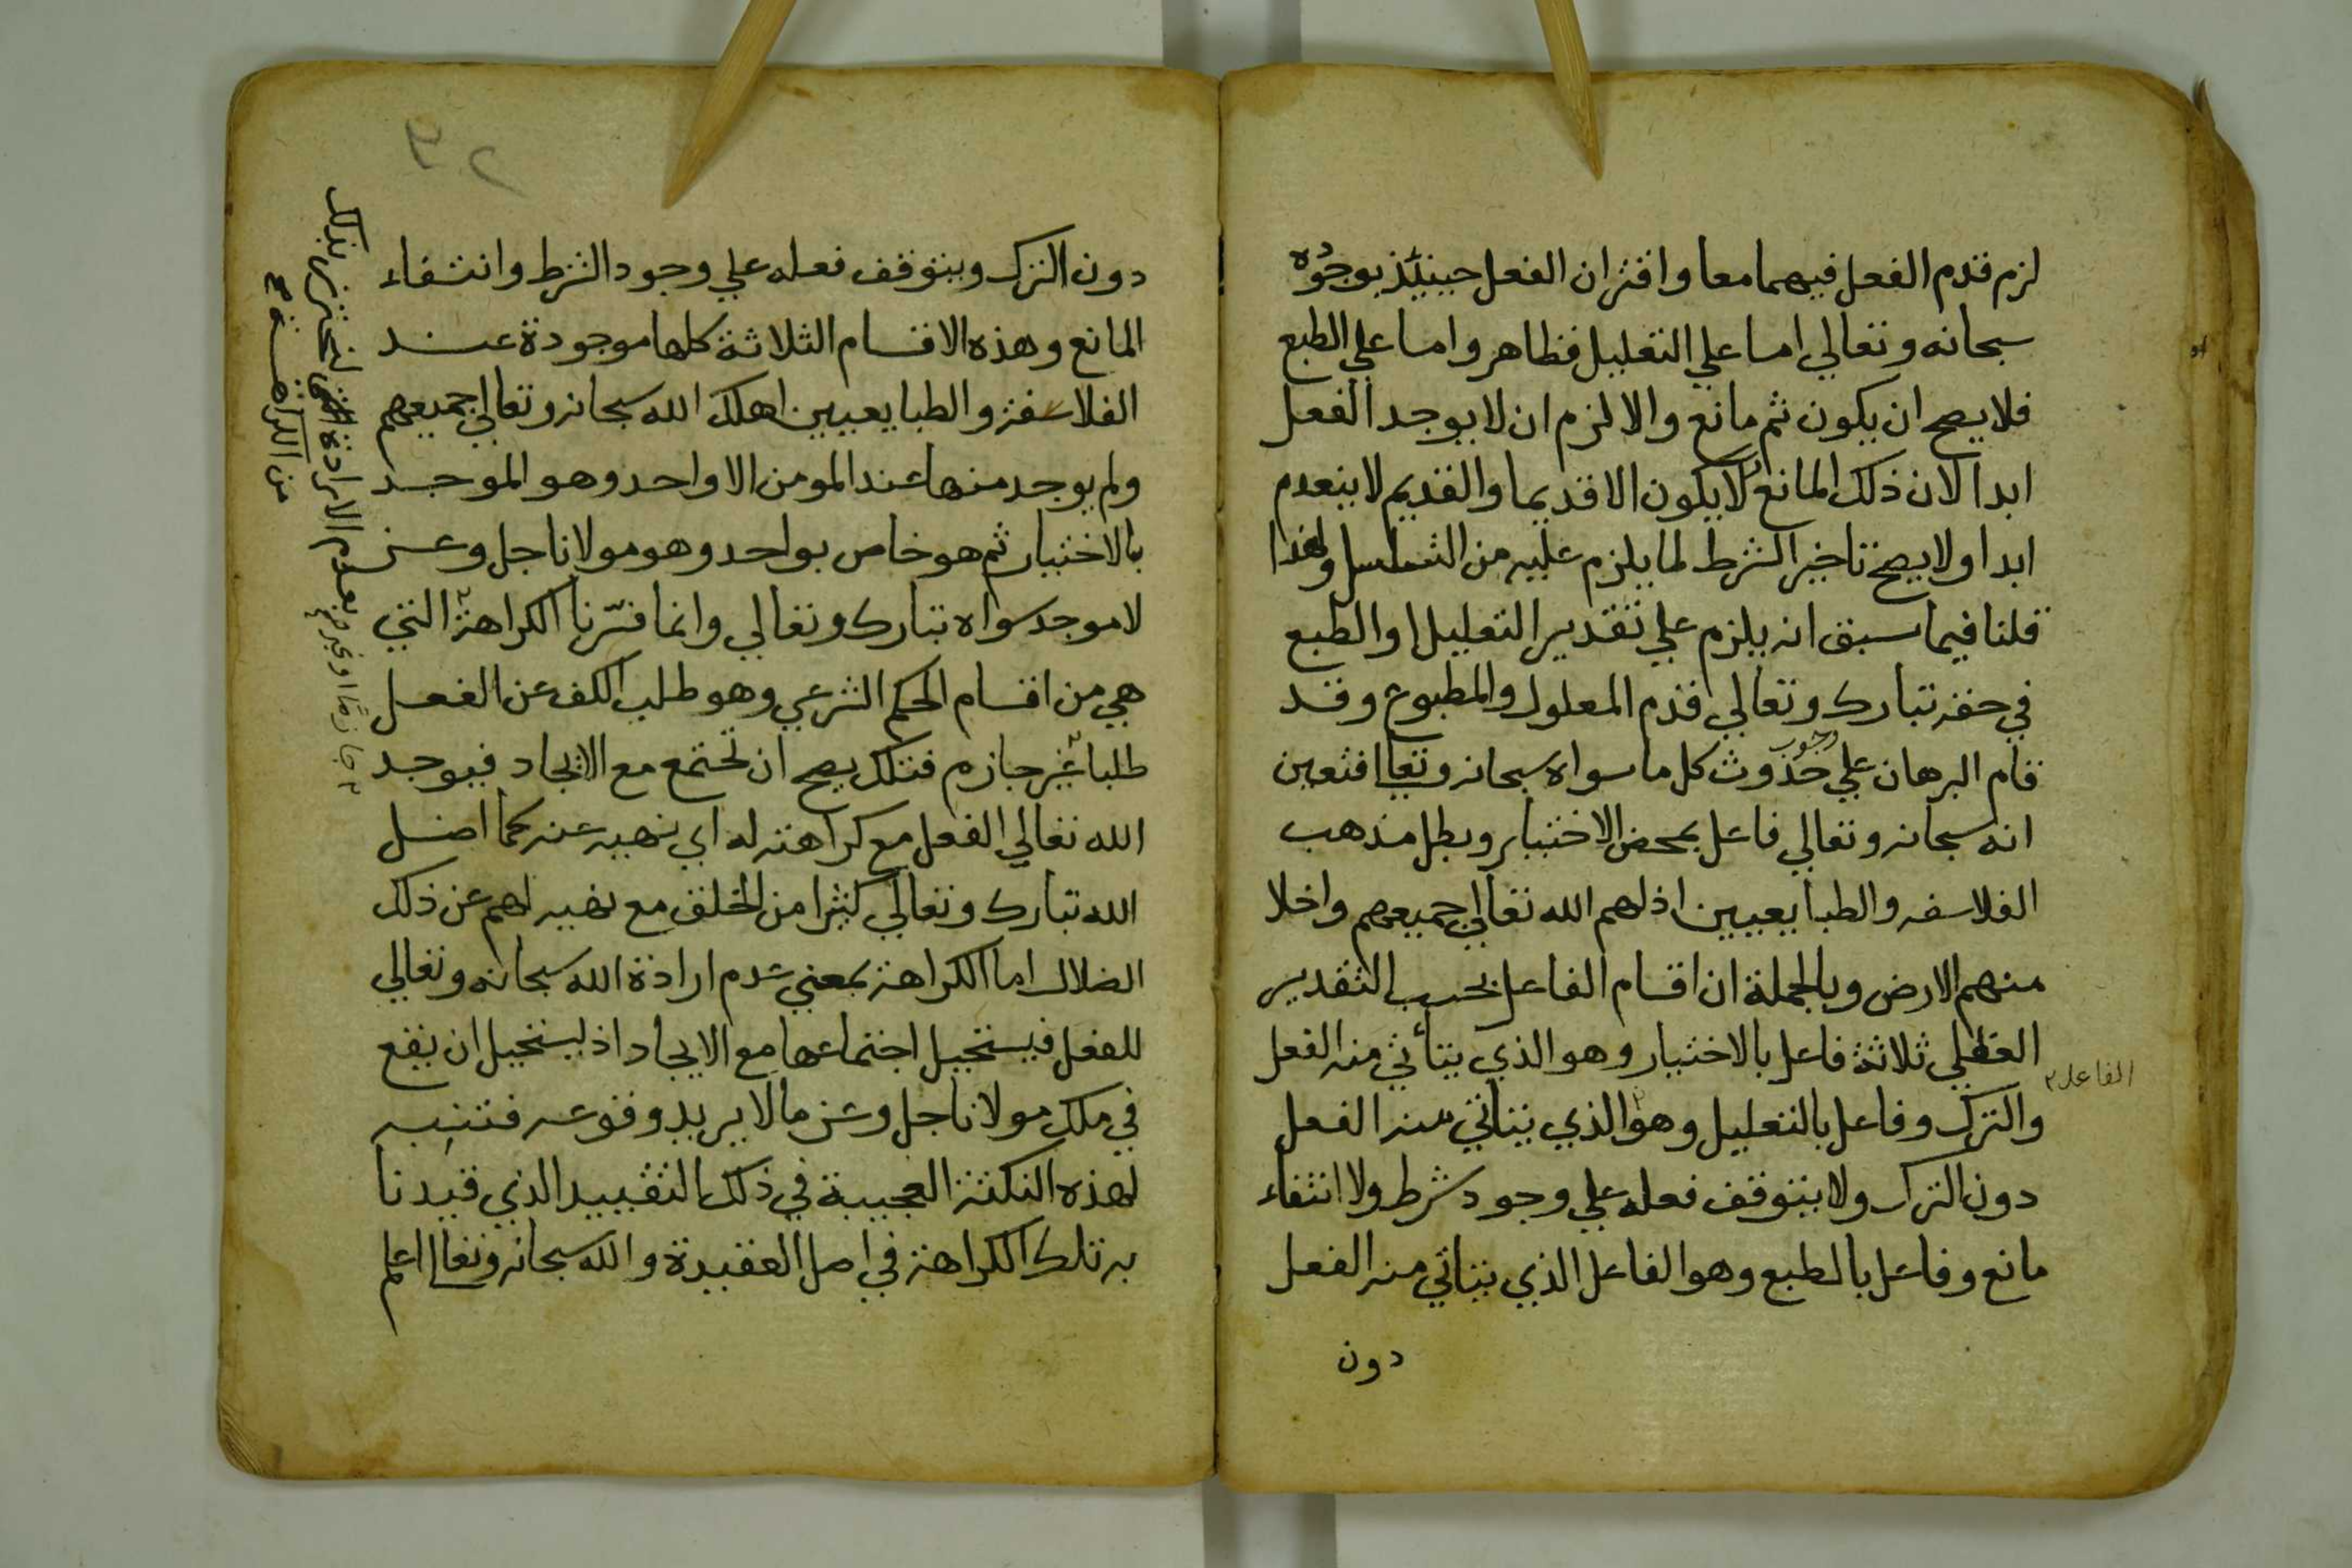 لزم قدم الفعل فيهما معا واقتران الفعل حينئذ بوجوده
سبحانه وتعالي اما علي التعليل فظاهر واما علي الطبع
فلا يصح ان يكون ثم مانع والا لزم ان لا يوجد الفعل
ابدا لان ذلك المانع لا يكون الا قديما والقديم لا ينعدم
ابدا ولا يصح تاخير الشرط لما يلزم عليه من التسلسل ولهذا
قلنا فيما سبق انه يلزم علي تقدير التعليل او الطبع
في حقه تبارك وتعالي قدم المعلول والمطبوع وقد
قام البرهان علي وجوب حدوث كل ما سواه سبحانه وتعالي فتعين
انه سبحانه وتعالي فاعل بمحض الاختيار وبطل مذهب
الفلاسفه والطبايعيين اذلهم الله تعالي جميعهم واخلا
منهم الارض وبالجملة ان اقسام الفاعل بحسب التقدير
العقلي ثلاثة فاعل بالاختيار وهو الذي يتأتي منه الفعل
الفاعل
والترك وفاعل بالتعليل وهو الذي يتاتي منه الفعل
دون الترك ولا يتوقف فعله علي وجود شرط ولا انتفاء
مانع وفاعل بالطبع وهو الفاعل الذي يتاتي منه الفعل
دون
٢٩
دون الترك ويتوقف فعله علي وجود الشرط وانتفاء
المانع وهذه الاقسام الثلاثة كلها موجودة عند
الفلاسفة والطبايعيين اهلك الله سبحانه وتعالي جميعهم
ولم يوجد منها عند المومن الا واحد وهو الموجد
بالاختيار ثم هو خاص بواحد وهو مولانا جل وعز
لا موجد سواه تبارك وتعالي وانما فسّرنا الكراهة التي
هي من اقسام الحكم الشرعي وهو طلب الكف عن الفعل
طلبا غير جازم فتلك يصح ان تجتمع مع الايجاد فيوجد
الله تعالي الفعل مع كراهته له اي نهيه عنه كما اضل
الله تبارك وتعالي كثيرا من الخلق مع نهيه لهم عن ذلك
الضلال اما الكراهة بمعني عدم ارادة الله سبحانه وتعالي
للفعل فيستحيل اجتماعها مع الايجاد اذ يستحيل ان يقع
في ملك مولانا جل وعز ما لا يريد وقوعه فتنبه
لهذه النكتة العجيبة في ذلك التقييد الذي قيدنا
به تلك الكراهة في اصل العقيدة والله سبحانه وتعالي اعلم
بعدم الارادة لنحترز بذلك
من الكراهة
جازما او غير